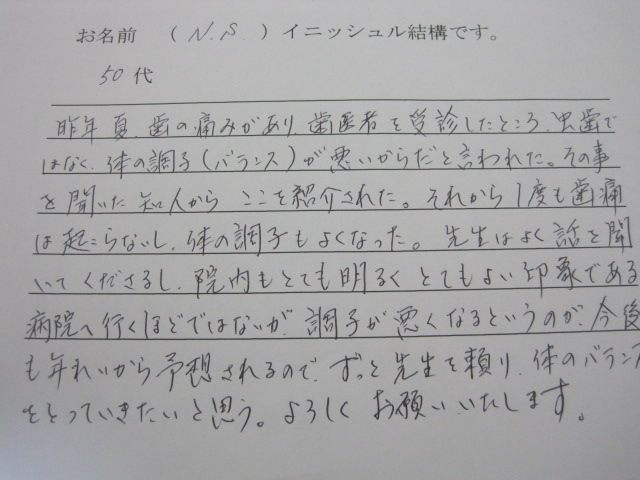 お名前 （ N.S. ）イニッシュル結構です。
50代
昨年夏、歯の痛みがあり、歯医者を受診したところ、虫歯で
はなく、体の調子（バランス）が悪いからだと言われた。その事
を聞いた知人から ここを紹介された。それから1度も歯痛
は起こらないし、体の調子もよくなった。先生はよく話を聞
いてくださるし、院内もとても明るくとてもよい印象である
病院へ行くほどではないが、調子が悪くなるというのが、今後
も年れいから予想されるので、ずっと先生を頼り、体のバランス
をとっていきたいと思う。よろしくお願いいたします。